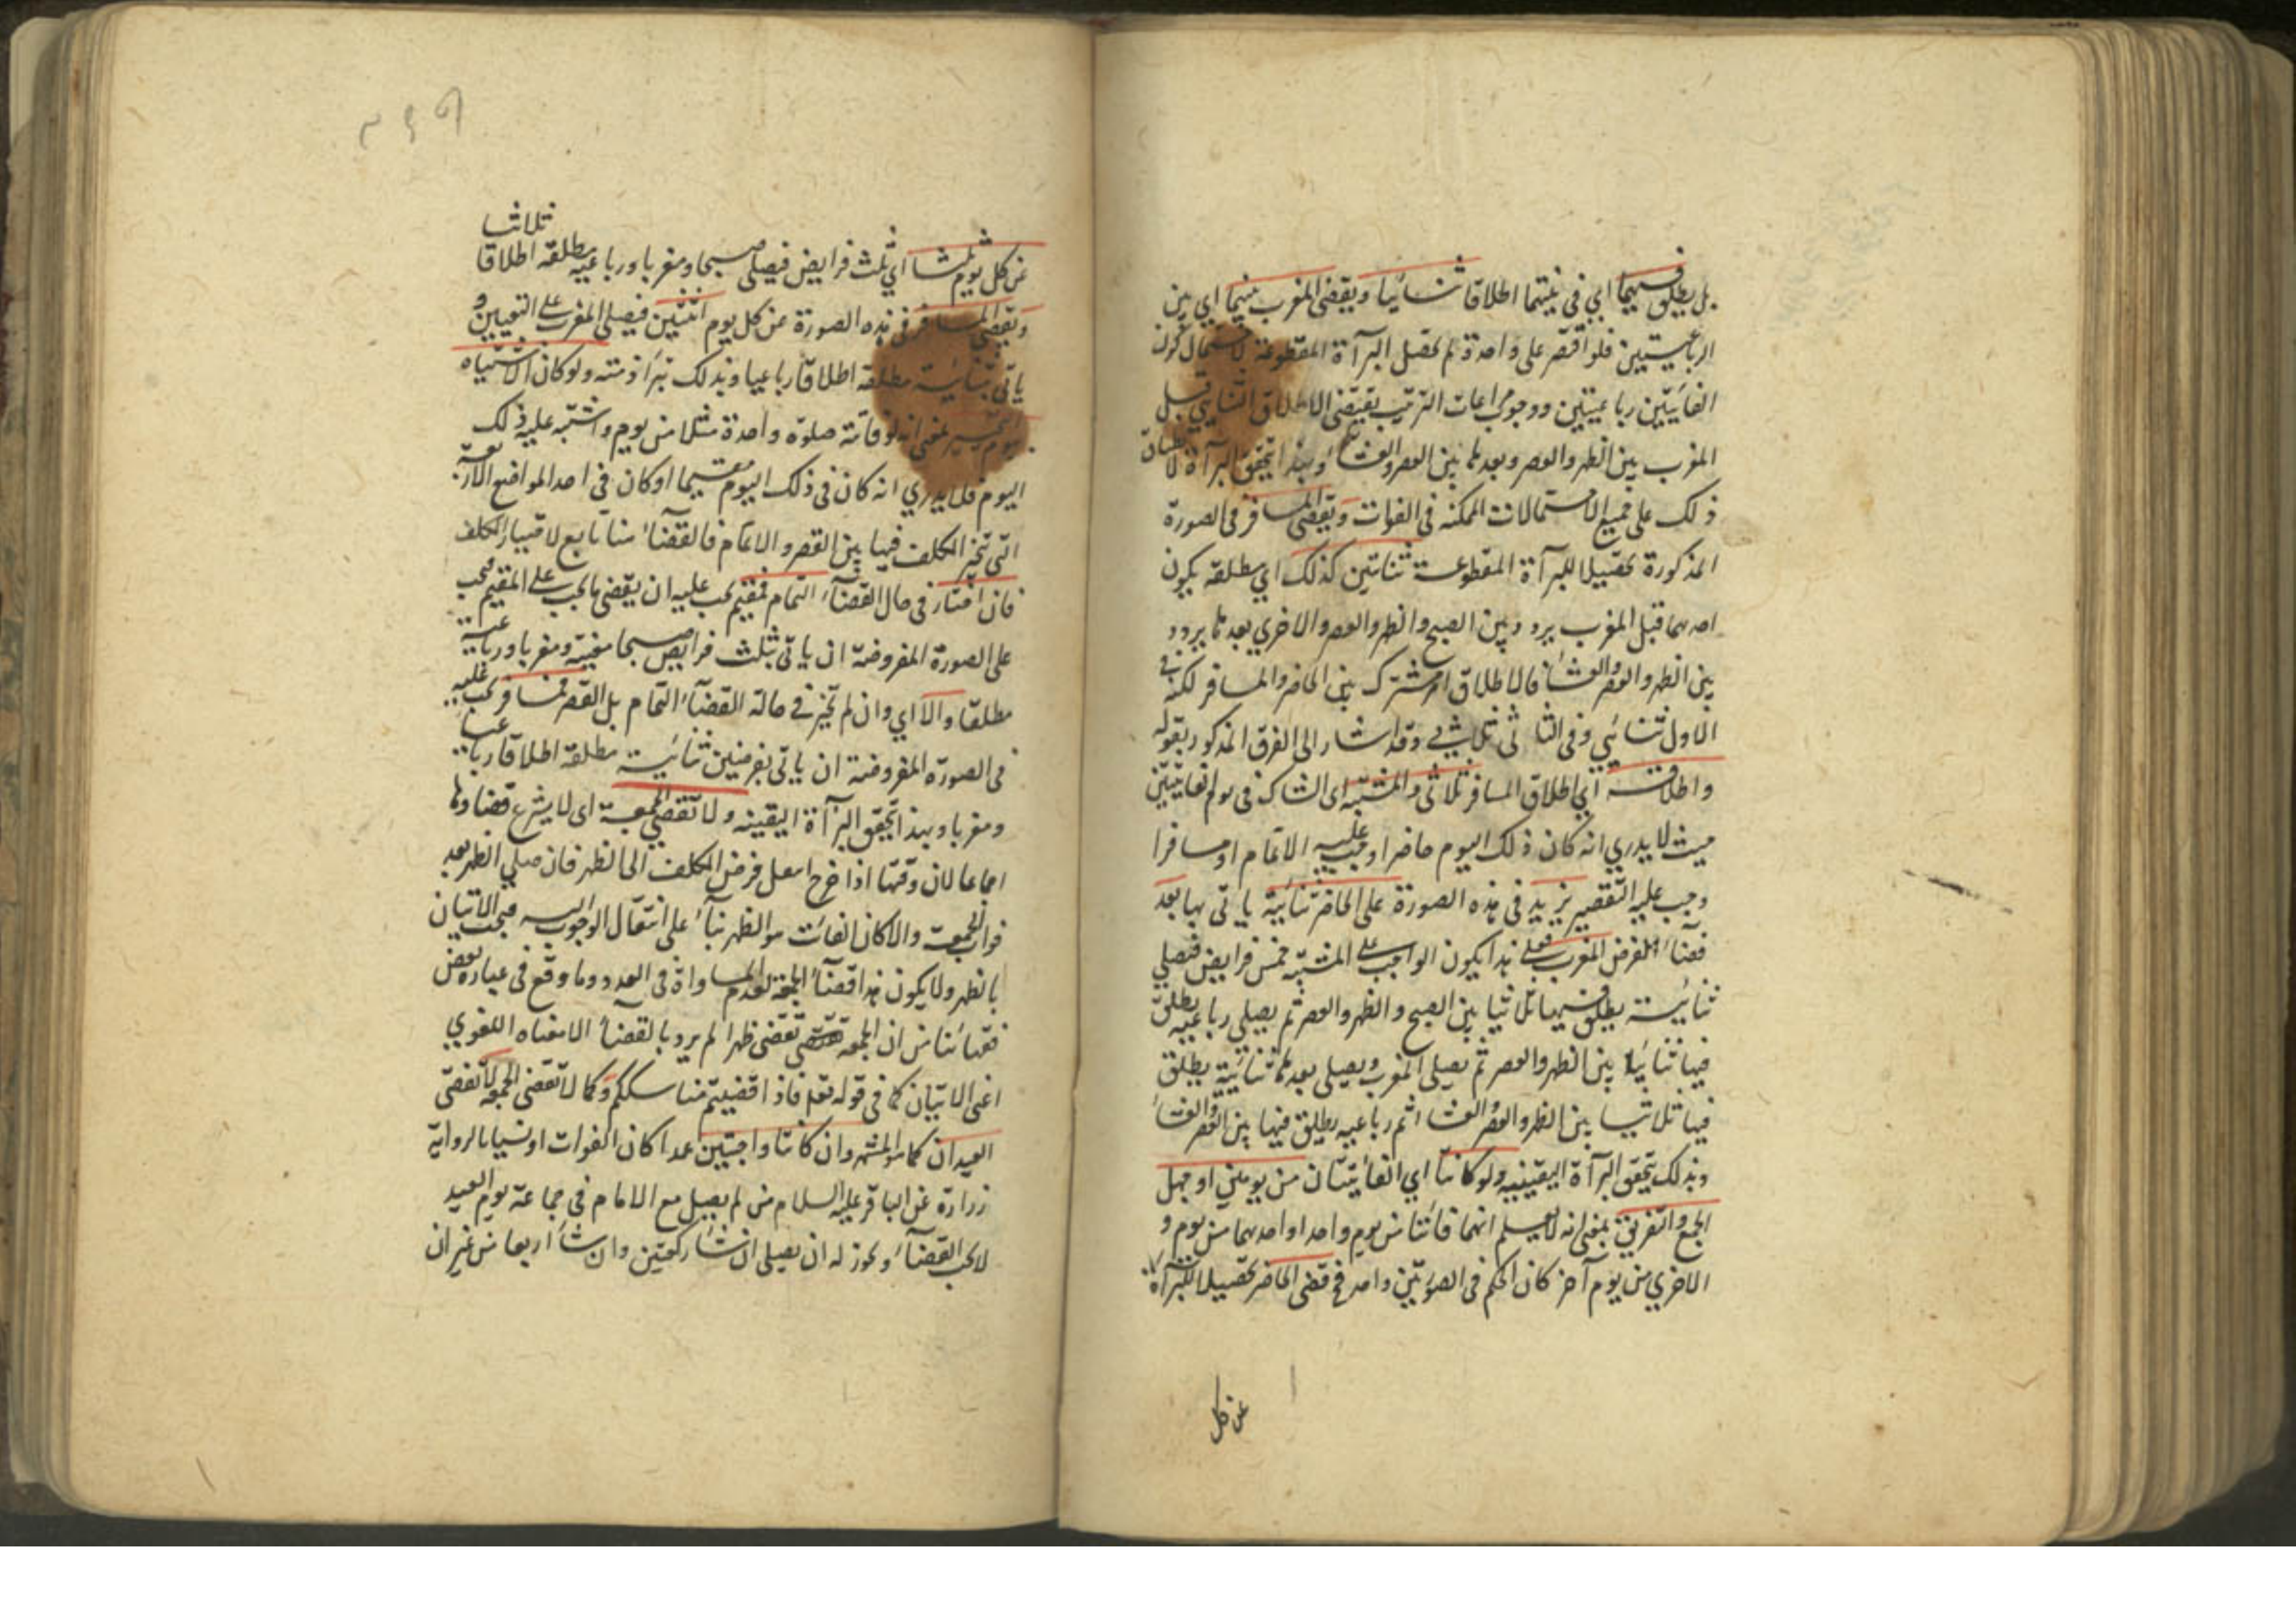 بل يطلق فيهما اي في نيتهما اطلاقا ثنائيا ويقضي المغرب بينهما اي بين
الرباعيتين فلو اقتصر على واحدة لم تحصل البرآءة المقطوعة لاحتمال كون
الفائتتين رباعيتين ووجوب مراعات الترتيب يقتضي الاطلاق الثنايي قبل
المغرب بين الظهر والعصر وبعدها بين العصر والعشاء وبهذا تتحقق البرآءة لانطباق
ذلك على جميع الاحتمالات الممكنه في الفوات ويقضي المسافر في الصورة
المذكورة تحصيلا للبرآءة المقطوعة ثنائتين كذلك اي مطلقه يكون
احدهما قبل المغرب يردد بين الصبح والظهر والعصر والاخري بعدها يردد
بين الظهر والعصر والعشاء فالاطلاق امر مشترك بين الحاضر والمسافر لكنه في
الاول ثنائي وفي الثاني ثلاثي وقد اشار الى الفرق المذكور بقوله
واطلاقه اي اطلاق المسافر ثلاثي والمشتبه اي الشاك في يوم الفائتتين
حيث لا يدري انه كان ذلك اليوم حاضرا وجب عليه الاتمام او مسافرا
وجب عليه التقصير يزيد في هذه الصورة على الحاضر ثنائية ياتي بها بعد
قضاء الفرض المغرب فعلى هذا يكون الواجب على المشتبه خمس فرايض فيصلي
ثنائية يطلق فيها ثلاثيا بين الصبح والظهر والعصر ثم يصلي رباعيه يطلق
فيها ثنائيا بين الظهر والعصر ثم يصلي المغرب ويصلي بعدها ثنائية يطلق
فيها ثلاثيا بين الظهر والعصر والعشاء ثم رباعيه يطلق فيها بين العصر والعشاء
وبذلك تتحقق البرآءة اليقينيه ولو كانتا اي الفائتتان من يومين او جهل
الجمع والتفريق بمعنى انه لا يعلم انهما فائتتا من يوم واحد او احدهما من يوم و
الاخري من يوم آخر كان الحكم في الصورتين واحد فيقضي الحاضر تحصيلا للبرآءة
عن كل
ثلاثيا
عن كل يوم ثلثا اي ثلث فرايض فيصلي صبحا ومغربا ورباعيه مطلقه اطلاقا
ويقضي المسافر في هذه الصورة عن كل يوم اثنتين فيصلي المغرب على التعيين و
ياتي بثنائية مطلقه اطلاقا رباعيا وبذلك تبرأ ذمته ولو كان الاشتباه
بمعنى انه لو فاتته صلوة واحدة مثلا من يوم واشتبه عليه ذلك
اليوم فلا يدري انه كان في ذلك اليوم مقيما او كان في احد المواضع الاربعة
التي تخير المكلف فيها بين القصر والاتمام فالقضاء هنا تابع لاختيار المكلف
فان اختار في حال القضاء التمام فمقيم يجب عليه ان يقضي ما يجب على المقيم فيجب
على الصورة المفروضة ان ياتي بثلث فرايض صبحا معينه ومغربا ورباعية
مطلقا والا اي وان لم تخير في حالة القضاء التمام بل القصر فمسافر يجب عليه
في الصورة المفروضة ان ياتي بفرضين ثنائية مطلقه اطلاقا رباعيا
ومغربا وبهذا تتحقق البرآءة اليقينه ولا تقضي الجمعة اي لا يشرع قضاوها
اجماعا لان وقتها اذا خرج انتقل فرض المكلف الى الظهر فان صلي الظهر بعد
فوات الجمعة والا كان الفائت هو الظهر بناء على انتقال الوجوب اليه فيجب الاتيان
بالظهر ولا يكون هذا قضاء الجمعة لعدم المساواة في العدد وما وقع في عبارة بعض
فقهائنا من ان الجمعة تقضي ظهرا لم يرد بالقضاء الا معناه اللغوي
اعني الاتيان كما في قوله تعالى فاذا قضيتم مناسككم وكما لا تقضي الجمعه لا تقضي
العيدان كما هو المشهور وان كانتا واجبتين عمدا كان الفوات او نسيانا لرواية
زرارة عن الباقر عليه السلام من لم يصل مع الامام في جماعة يوم العيد
لا يجب القضاء ويجوز له ان يصلي ان شاء ركعتين وان شاء اربعا من غير ان